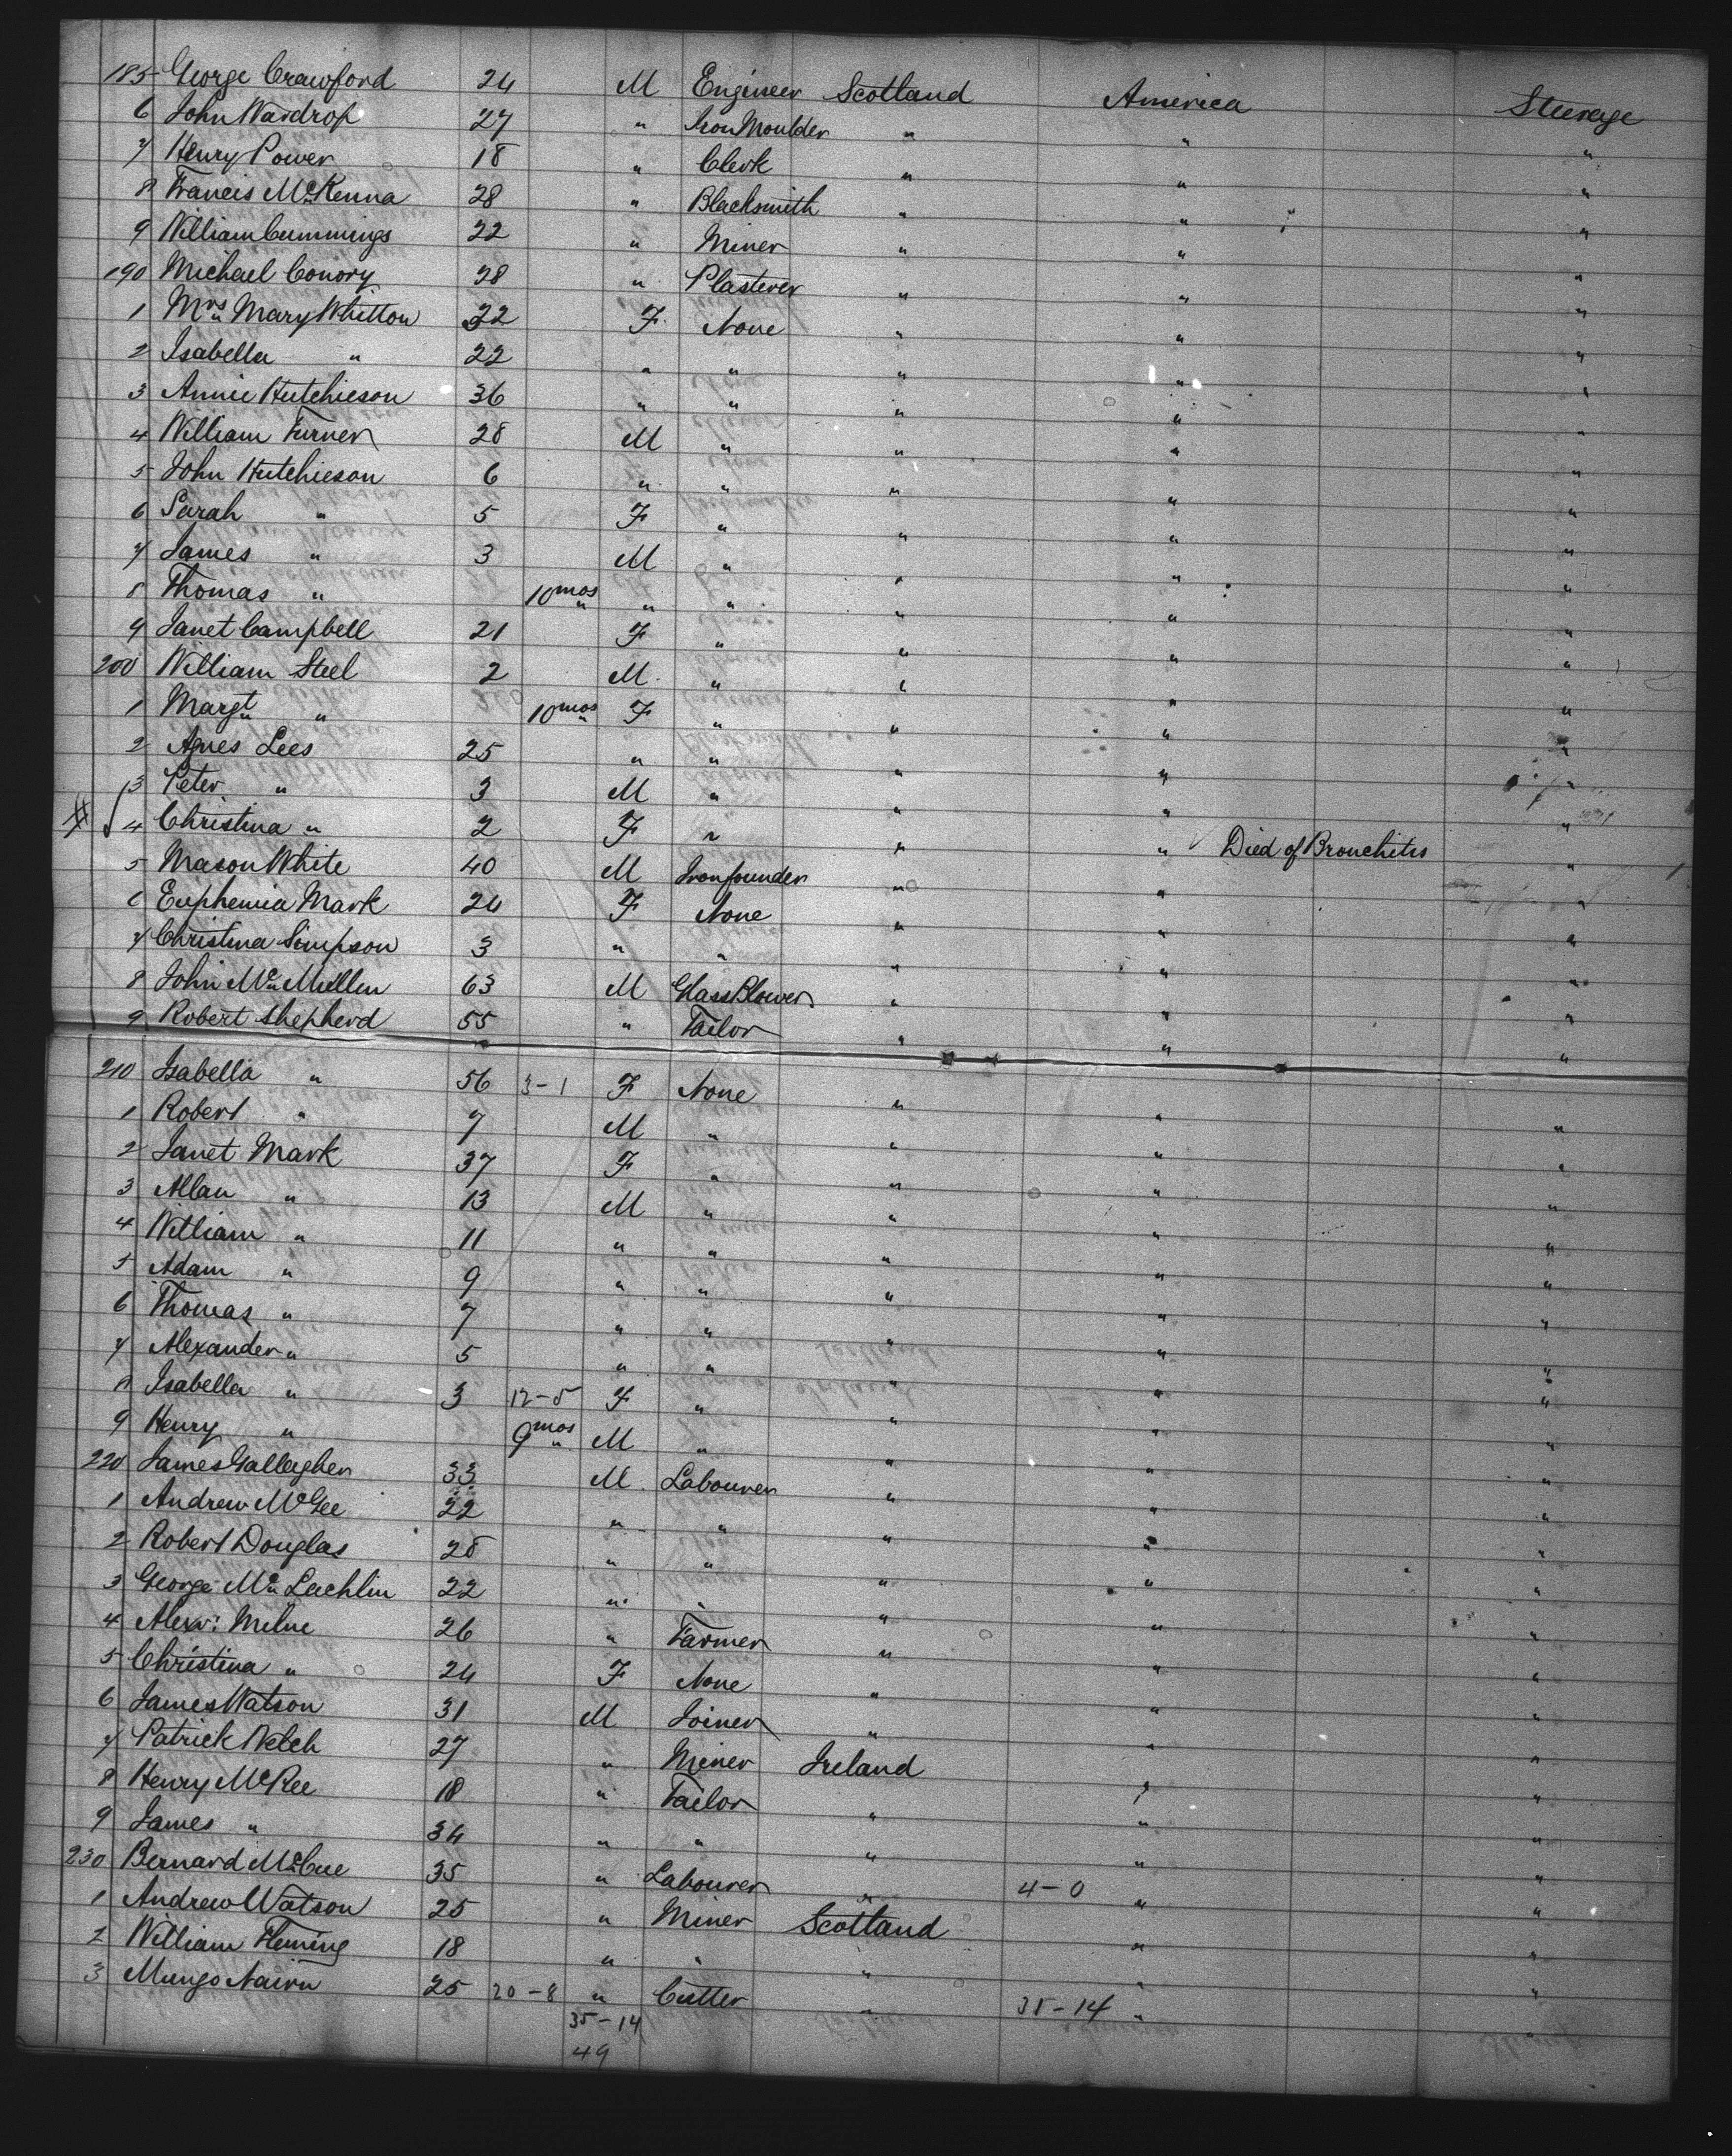 185 George Crawford 24 M Engineer Scotland America Steerage
6 John Wardrop 27 " Iron Moulder " " "
7 Henry Power 18 " Clerk " " "
8 Francis McKenna 28 " Blacksmith " " "
9 William Cummings 22 " Miner " " "
190 Michael Conory 28 " Plasterer " " "
1 Mrs Mary Whitton 22 F None " " "
2 Isabella " 22 " " " " "
3 Annie Hutchieson 36 " " " " "
4 William Turner 28 M " " " "
5 John Hutchieson 6 " " " " "
6 Sarah " 5 F " " " "
7 James " 3 M " " " "
8 Thomas " 10 mos " " " " "
9 Janet Campbell 21 F " " " "
200 William Steel 2 M " " " "
1 Margt " 10 mos F " " " "
2 Agnes Lees 25 " " " " "
3 Peter " 3 M " " " "
4 Christina " 2 F " " " Died of Bronchitis "
5 Mason White 40 M Ironfounder " " "
6 Euphemia Mark 24 F None " " "
7 Christina Simpson 3 " " " " "
8 John McMullen 63 M Glass Blower " " "
9 Robert Shepherd 55 " Tailor " " "
210 Isabella " 56 3-1 F None " " "
1 Robert " 7 M " " " "
2 Janet Mark 37 F " " " "
3 Allan " 13 M " " " "
4 William " 11 " " " " "
5 Adam " 9 " " " " "
6 Thomas " 7 " " " " "
7 Alexander " 5 " " " " "
8 Isabella " 3 12-5 F " " " "
9 Henry " 9 mos M " " " "
220 James Gallagher 33 M Labourer " " "
1 Andrew McGee 22 " " " " "
2 Robert Douglas 28 " " " " "
3 George McLachlin 22 " " " " "
4 Alexr: Milne 26 " Farmer " " "
5 Christina " 24 F None " " "
6 James Watson 31 M Joiner " " "
7 Patrick Welch 27 " Miner Ireland " "
8 Henry McKee 18 " Tailor " " "
9 James " 34 " " " " "
230 Bernard McCue 35 " Labourer " 4-0 " "
1 Andrew Watson 25 " Miner Scotland " "
2 William Fleming 18 " " " " "
3 Mungo Nairn 25 20-8 " Cutter " 35-14 " "
35-14
49